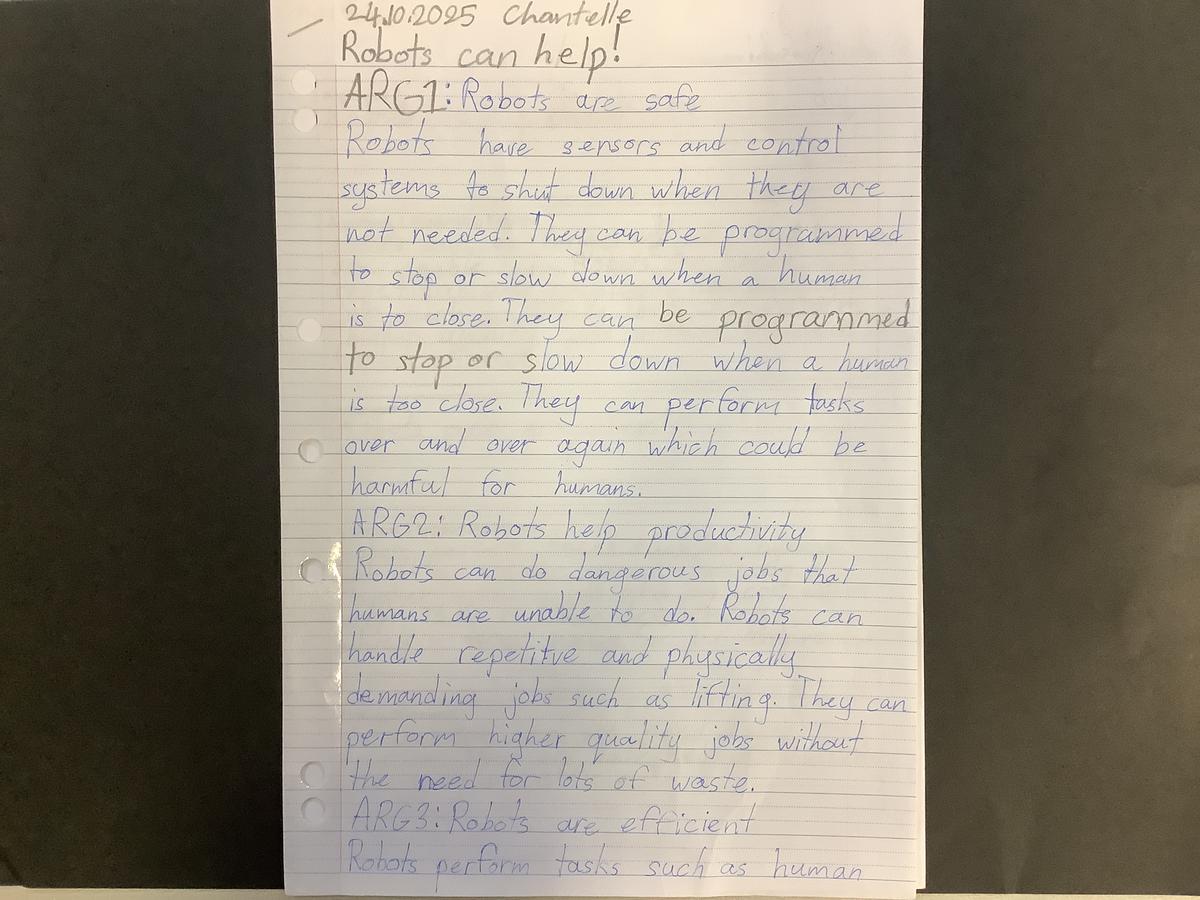 24.10.2025 Chantelle
Robots can help!
ARG1: Robots are safe
Robots have sensors and control
systems to shut down when they are
not needed. They can be programmed
to stop or slow down when a human
is to close. They can be programmed
to stop or slow down when a human
is too close. They can perform tasks
over and over again which could be
harmful for humans.
ARG2: Robots help productivity
Robots can do dangerous jobs that
humans are unable to do. Robots can
handle repetitve and physically
demanding jobs such as lifting. They can
perform higher quality jobs without
the need for lots of waste.
ARG3: Robots are efficient
Robots perform tasks such as human